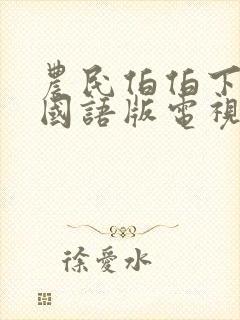 農民伯伯下
國語版電視
徐愛水